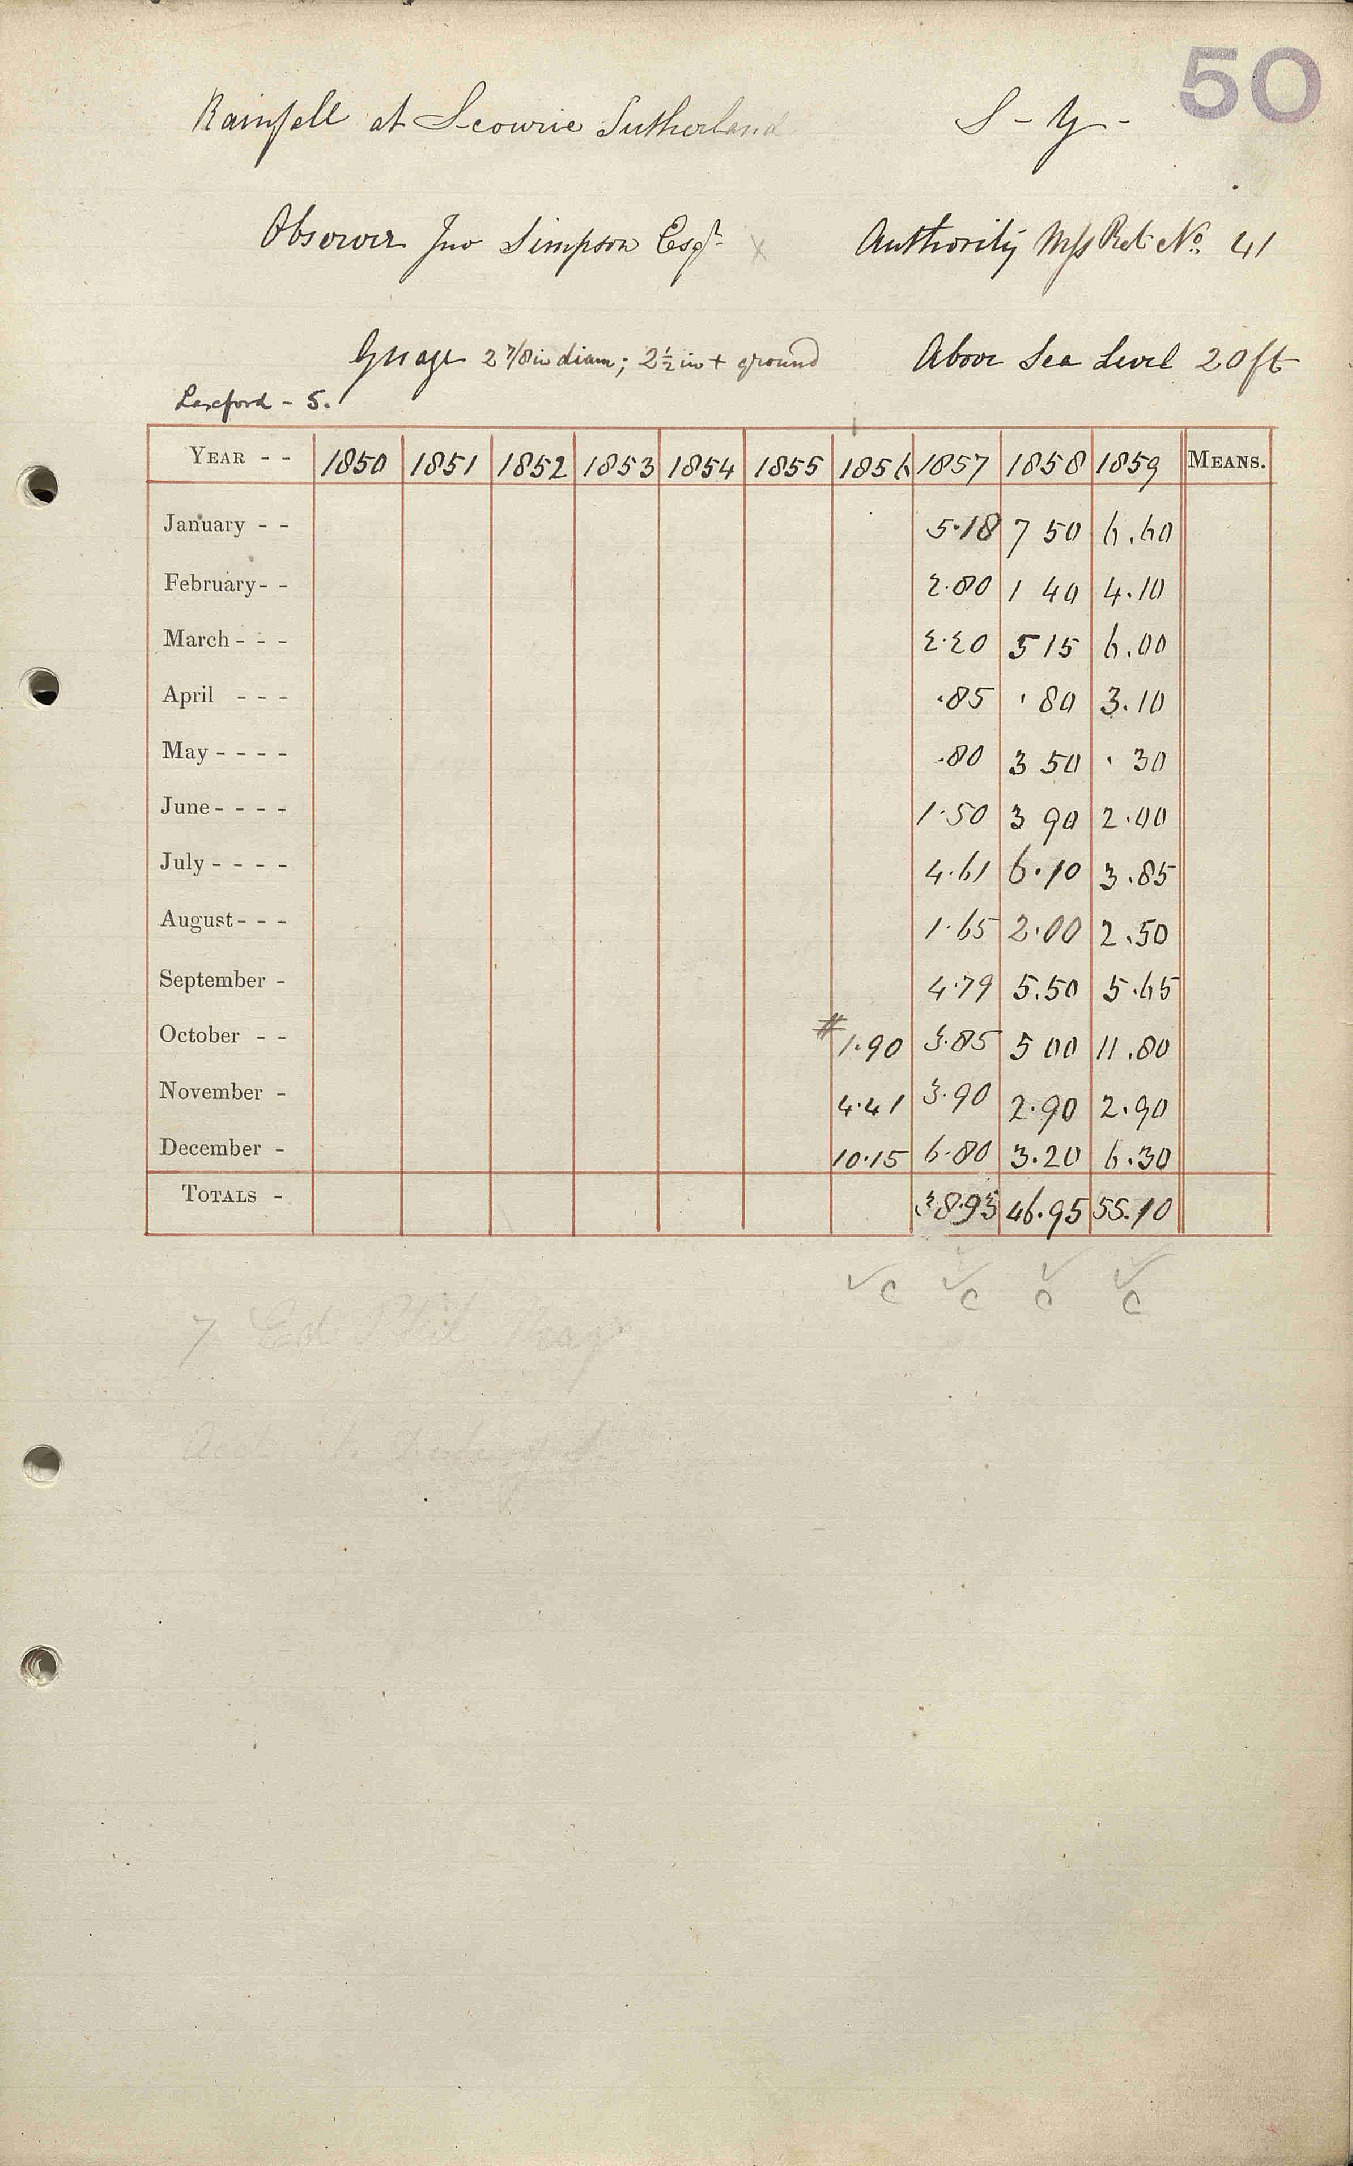 50
Rainfall at Scourie Sutherland S - Y -
Observer Jno Simpson Esqr. x Authority Mss Ret No. 41
Guage 2 7/8 in diam; 2 1/2 in + ground Above Sea Level 20 ft
Laxford - 5.
YEAR - - 1850 1851 1852 1853 1854 1855 1856 1857 1858 1859 MEANS.
January - - 5.18 7 50 6.60
February - - 2.80 1 40 4.10
March - - - 2.20 5 15 6.00
April - - - .85 . 80 3.10
May - - - - .80 3 50 . 30
June - - - - 1.50 3 90 2.00
July - - - - 4.61 6.10 3.85
August - - - 1.65 2.00 2.50
September - 4.79 5.50 5.65
October - - # 1.90 3.85 5 00 11.80
November - 4.41 3.90 2.90 2.90
December - 10.15 6.80 3.20 6.30
TOTALS - 38.93 46.95 55.10
✓ C ✓ C ✓ C ✓ C
7 Ed Phil Mag